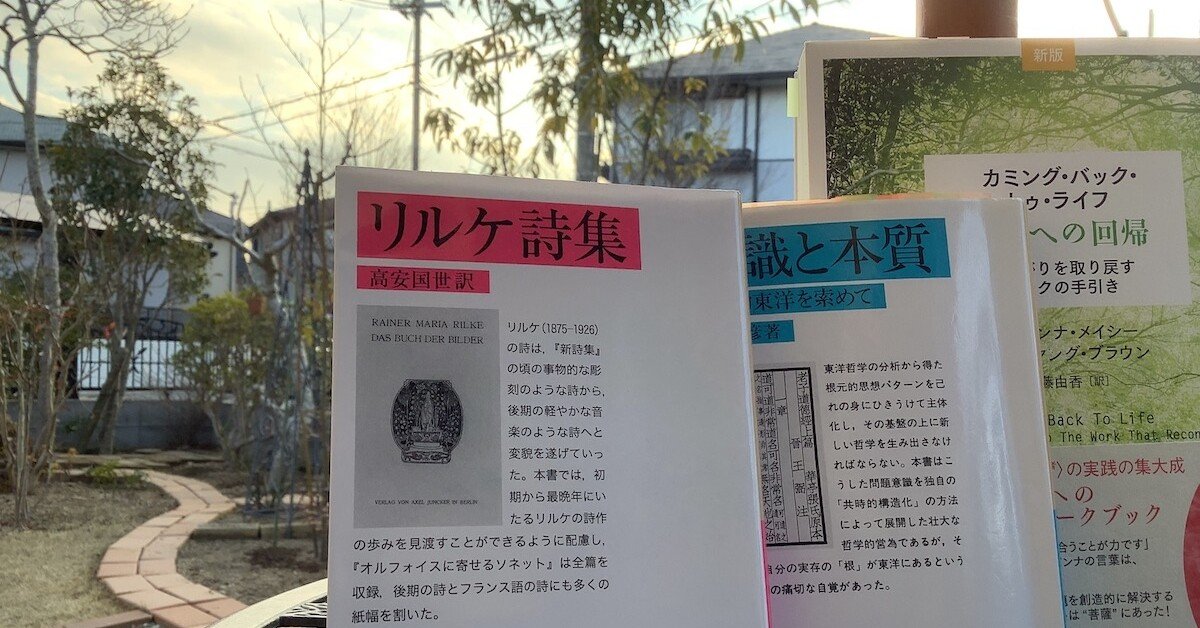 リルケ詩集
高安国世訳
RAINER MARIA RILKE
DAS BUCH DER BILDER
VERLAG VON AXEL JUNCKER IN BERLIN
リルケ(1875-1926)
の詩は,『新詩集』
の頃の事物的な彫
刻のような詩から,
後期の軽やかな音
楽のような詩へと
変貌を遂げていっ
た。本書では,初
期から最晩年にい
たるリルケの詩作
の歩みを見渡すことができるように配慮し,
『オルフォイスに寄せるソネット』は全篇を
収録,後期の詩とフランス語の詩にも多くの
紙幅を割いた。
識と本質
東洋を索めて
著
老子道德經上篇
晉王弼注
華亭張氏原本
一章
東洋哲学の分析から得た
根元的思想パターンを己
れの身にひきうけて主体
化し,その基盤の上に新
しい哲学を生み出さなけ
ればならない。本書はこ
うした問題意識を独自の
「共時的構造化」の方法
によって展開した壮大な
哲学的営為であるが,そ
自分の実存の「根」が東洋にあるという
の痛切な自覚があった。
新版
カミング・バック・
トゥ・ライフ
への回帰
りを取り戻す
クの手引き
ンナ・メイシー
ング・ブラウン
藤由香[訳]
Back To Life
The Work That Recon
の実践の集大成
への
ークブック
合うことが力です」
ンナの言葉は、
を創造的に解決する
は“菩薩”にあった!